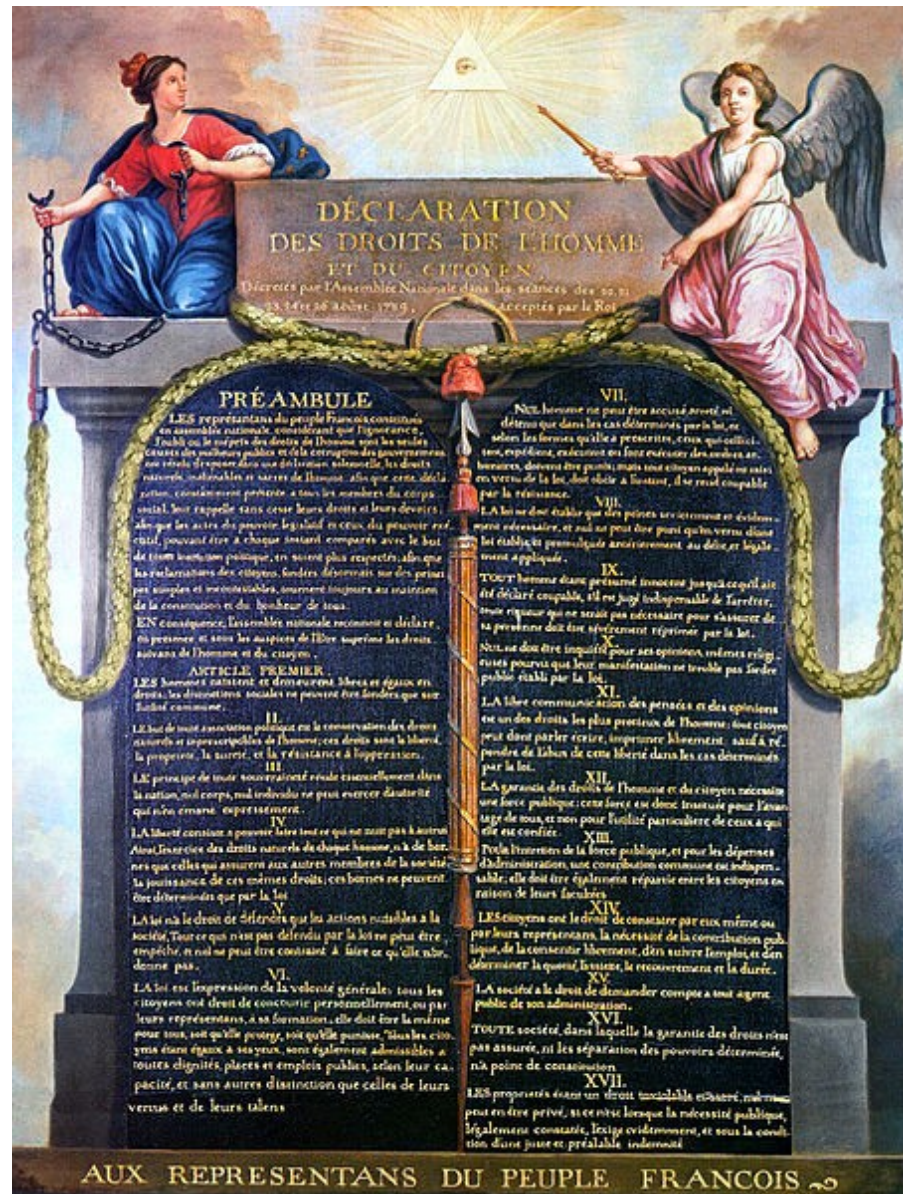 DÉCLARATION
DES DROITS DE L'HOMME
ET DU CITOYEN,
Décrétés par l'Assemblée Nationale dans les séances des 20, 21
23, 24 et 26 août 1789, acceptés par le Roi
PRÉAMBULE
LES représentans du peuple François constitués
en assemblée nationale, considérant que l'ignorance
l'oubli ou le mépris des droits de l'homme sont les seules
causes des malheurs publics et de la corruption des gouvernemens
ont résolu d'exposer dans une déclaration solemnelle, les droits
naturels, inaliénables et sacrés de l'homme; afin que cette décla
ration, constamment présente a tous les membres du corps
social, leur rappelle sans cesse leurs droits et leurs devoirs
afin que les actes du pouvoir législatif et ceux du pouvoir exé
cutif, pouvant être a chaque instant comparés avec le but
de toute institution politique, en soient plus respectés; afin que
les réclamations des citoyens, fondées désormais sur des princi
pes simples et incontestables, tournent toujours au maintien
de la constitution et du bonheur de tous.
EN conséquence, l'assemblée nationale reconnoit et déclare,
en présence et sous les auspices de l'Etre suprême les droits
suivans de l'homme et du citoyen.
ARTICLE PREMIER.
LES hommes naissent et demeurent libres et égaux en
droits. les distinctions sociales ne peuvent être fondées que sur
l'utilité commune.
II.
LE but de toute association politique est la conservation des droits
naturels et imprescriptibles de l'homme; ces droits sont la liberté,
la propriété, la sureté, et la résistance à l'oppression.
III.
LE principe de toute souveraineté réside essentiellement dans
la nation, nul corps, nul individu ne peut exercer d'autorité
qui n'en émane expressement.
IV.
LA liberté consiste a pouvoir faire tout ce qui ne nuit pas à autrui
Ainsi, l'exercice des droits naturels de chaque homme, n'a de bor-
nes que celles qui assurent aux autres membres de la société
la jouissance de ces mêmes droits; ces bornes ne peuvent
être déterminées que par la loi
V.
LA loi n'a le droit de défendre que les actions nuisibles à la
société, Tout ce qui n'est pas défendu par la loi ne peut être
empêché, et nul ne peut être contraint à faire ce qu'elle n'or-
donne pas.
VI.
LA loi est l'expression de la volonté générale; tous les
citoyens ont droit de concourir personnellement, ou par
leurs représentans, à sa formation; elle doit être la même
pour tous, soit qu'elle protege, soit qu'elle punisse, Tous les cito-
yens étant égaux à ses yeux, sont également admissibles a
toutes dignités, places et emplois publics, selon leur ca-
pacité, et sans autres distinction que celles de leurs
vertus et de leurs talens
VII.
NUL homme ne peut être accusé, arreté ni
détenu que dans les cas déterminés par la loi, et
selon les formes qu'elle a prescrites, ceux qui sollici-
tent, expédient, exécutent ou font exécuter des ordres ar-
bitraires, doivent être punis; mais tout citoyen appelé ou saisi
en vertu de la loi, doit obéir a l'instant, il se rend coupable
par la résistance.
VIII.
LA loi ne doit établir que des peines strictement et évidem-
ment nécessaire, et nul ne peut être puni qu'en vertu d'une
loi établie et promulguée antérierement au délit, et légale-
ment appliquée.
IX.
TOUT homme étant présumé innocent jusqu'a ce qu'il ait
été déclaré coupable, s'il est jugé indispensable de l'arrêter,
toute rigueur qui ne serait pas nécessaire pour s'assurer de
sa personne doit être sévèrement réprimée par la loi.
X.
NUL ne doit être inquiété pour ses opinions, mêmes religi-
euses pourvu que leur manifestation ne trouble pas l'ordre
public établi par la loi.
XI.
LA libre communication des pensées et des opinions
est un des droits les plus precieux de l'homme; tout citoyen
peut donc parler écrire, imprimer librement: sauf à ré-
pondre de l'abus de cette liberté dans les cas déterminés
par la loi.
XII.
LA garantie des droits de l'homme et du citoyen nécessite
une force publique; cette force est donc instituée pour l'avan-
tage de tous, et non pour l'utilité particuliere de ceux a qui
elle est confiée.
XIII.
Pour l'entretien de la force publique, et pour les dépenses
d'administration, une contribution commune est indispen-
sable; elle doit être également répartie entre les citoyens en
raison de leurs facultées
XIV.
LES citoyens ont le droit de constater par eux même ou
par leurs représentans, la nécessité de la contribution pub-
lique, de la consentir librement, d'en suivre l'emploi, et d'en
déterminer la quotité, l'assiette, le recouvrement et la durée.
XV.
LA société a le droit de demander compte a tout agent
public de son administration.
XVI.
TOUTE société, dans laquelle la garantie des droits n'est
pas assurée, ni les séparation des pouvoirs déterminée,
n'a point de constitution
XVII.
LES propriétés étant un droit inviolable et sacré, nul ne
peut en être privé, si ce n'est lorsque la nécessité publique,
légalement constatée, l'exige evidemment, et sous la condi-
tion d'une juste et préalable indemnité
AUX REPRESENTANS DU PEUPLE FRANCOIS